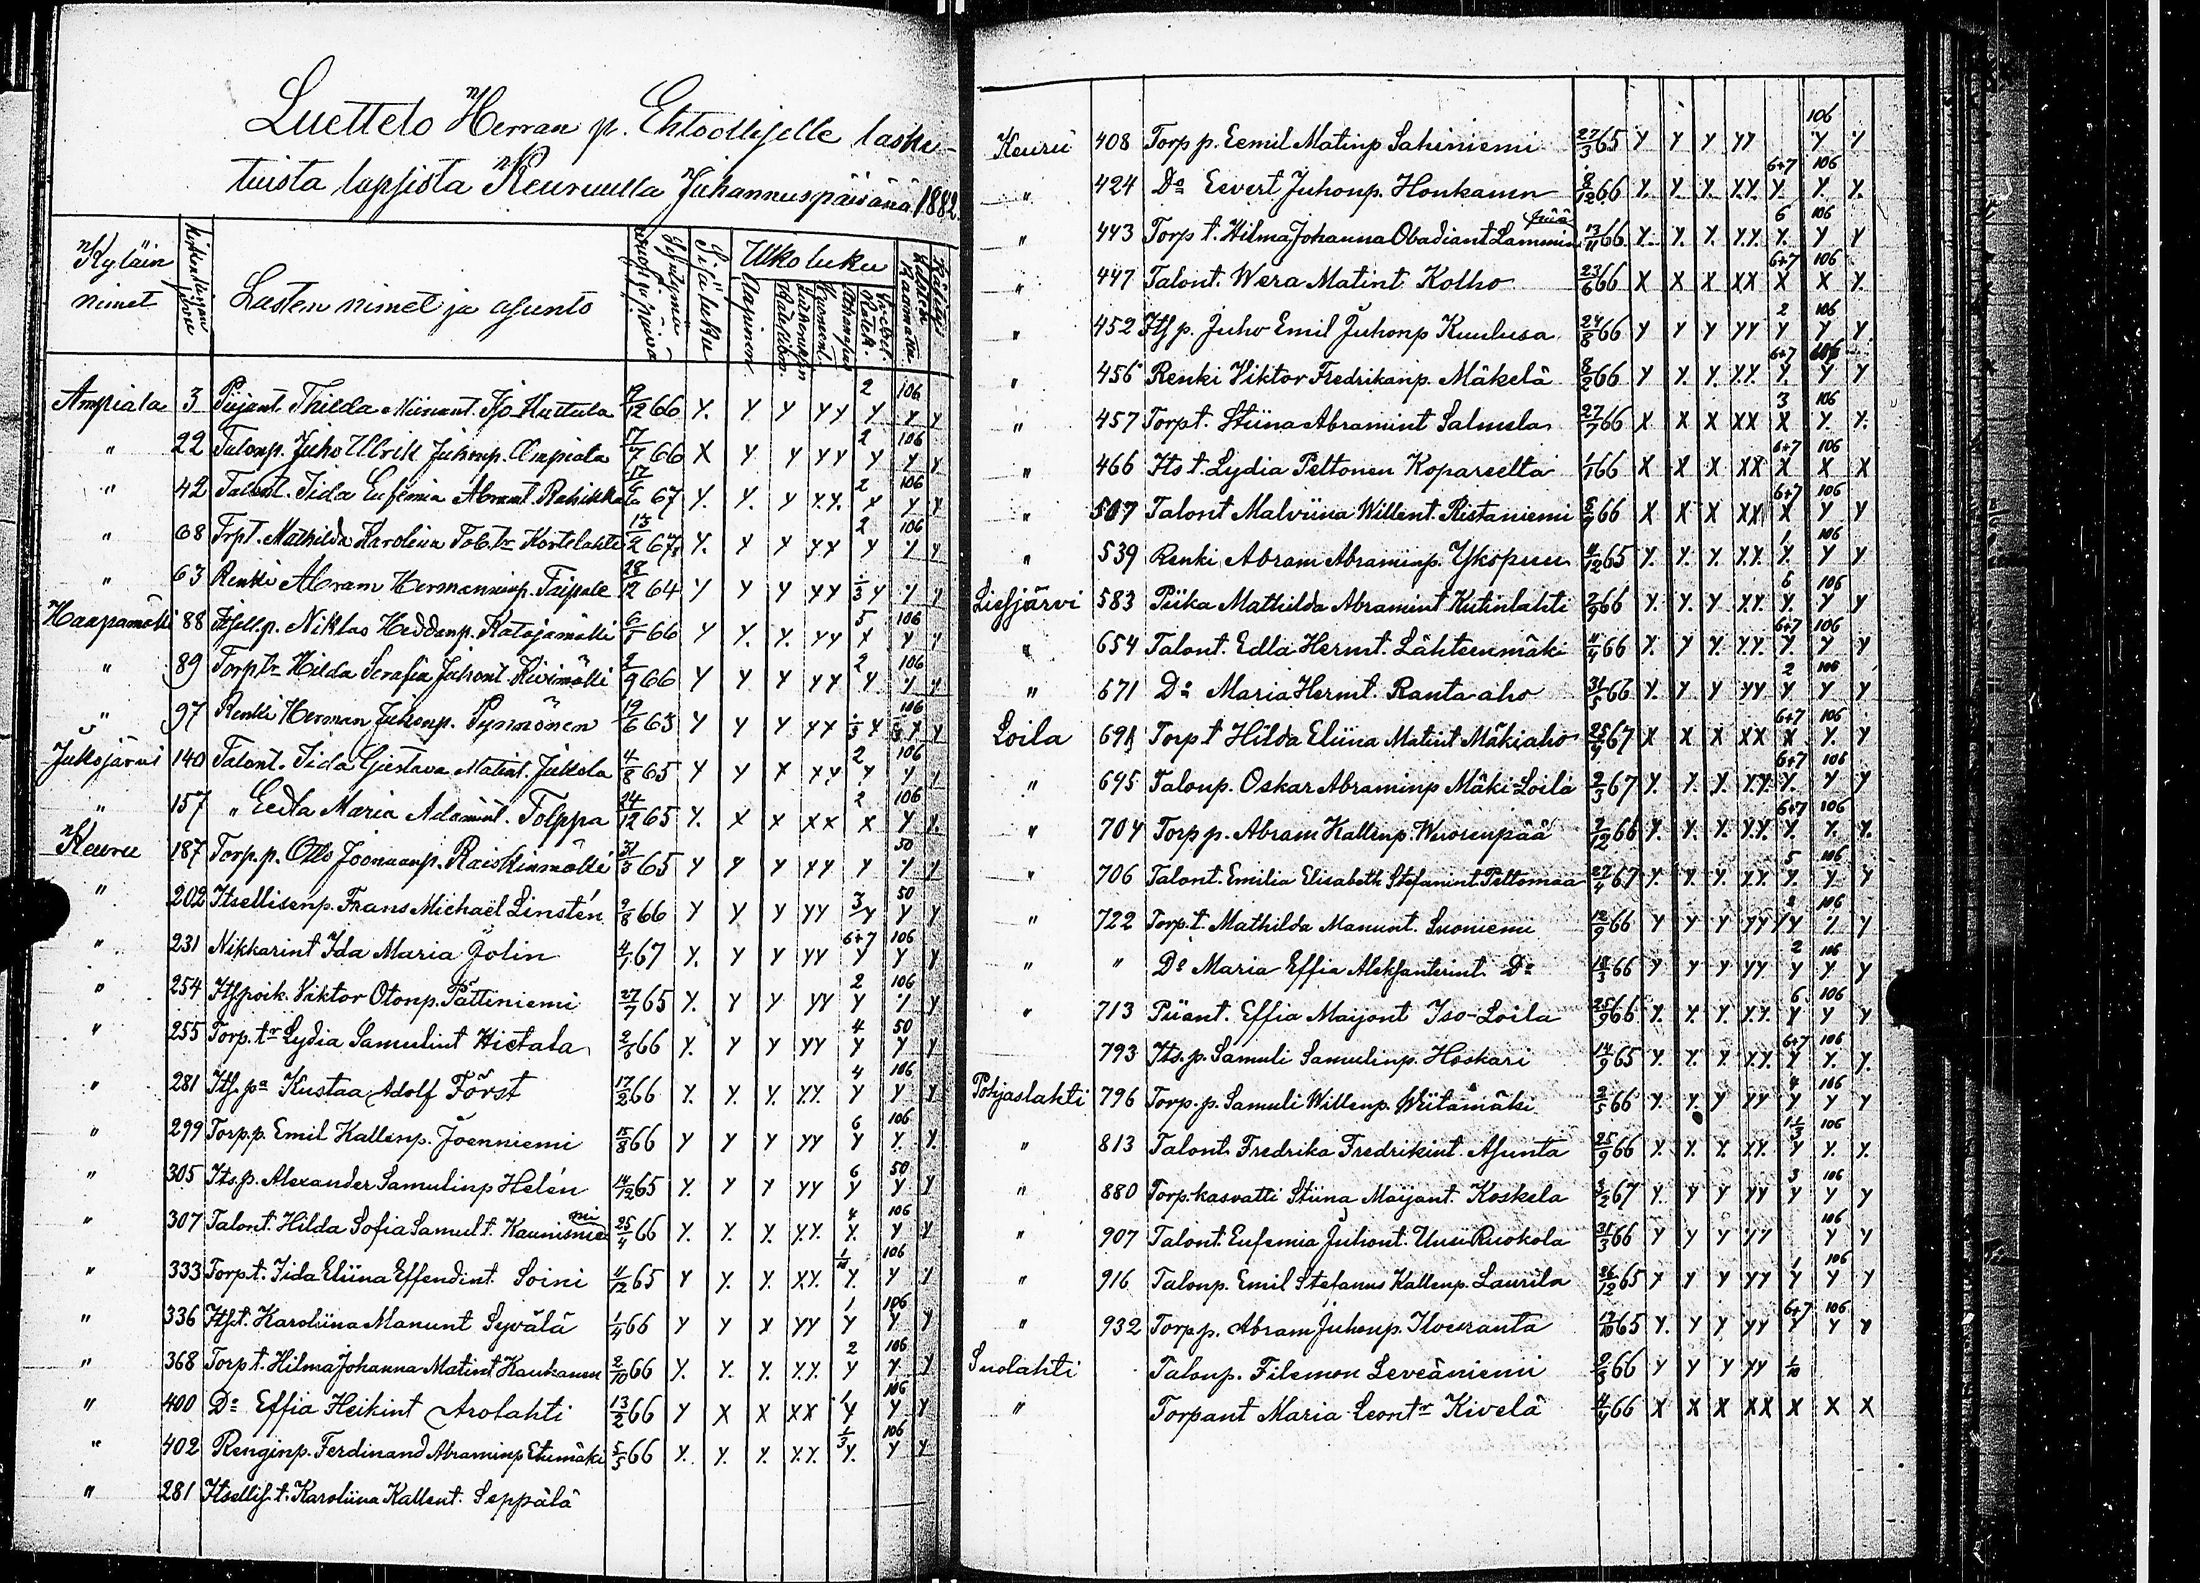 Luettelo Herran p. Ehtoolliselle laske-
tuista lapsista Keuruulla Juhannuspäivänä 1882.
Kyläin nimet Kirkonkirjan sivu Lasten nimet ja asunto Syntymä- vuosi ja päivä Sisäluku Ulkoluku
Ampiala 3 Piijant. Thilda Miinant. Iso-Huttula 9/12 66 y. y y yy 2 y 106 y y
" 22 Talonp. Juho Ulrik Juhonp. Ampiala 17/7 66 x y y yy 2 y 106 y y
" 42 Talont. Iida Eufemia Abramt. Rahikka 67 y. y. y y.y. 2 y 106 y y
" 68 Trpt. Mathilda Karolina Tob.tr Kortelahti 13/2 67 y. y y yy 2 y 106 y y
" 63 Renki Abram Hermanninp. Taipale 28/12 64 y y y yy 1/3 y y y
Haapamäki 88 Itsell.p. Niklas Heddanp. Katajamäki 6/1 66 y y. y. yy 5 x 106 y y
" 89 Torp.tr Hilda Serafia Juhont. Kivimäki 9/9 66 y y y yy 2 y 106 y y
" 97 Renki Herman Juhonp. Pynnönen 19/6 63 y y y yy 1/3 y 106 y y
Jukojärvi 140 Talont. Iida Gustava Matint. Jukola 4/8 65 y y x xy 2 y 106 y y
" 157 " Eedla Maria Adamint. Tolppa 24/12 65 y. x x xx 2 x 106 y y.
Keuru 187 Torp.p. Otto Joonaanp. Raiskinmäki 31/3 65 y y y yy y 50 y y
" 202 Itsellisenp. Frans Michaël Linstén 9/8 66 y y y yy 3/y 50 y y
" 231 Nikkarint Ida Maria Jolin 4/1 67 y. y y yy 6+7 y 106 y y
" 254 Itspoik. Viktor Otonp. Pättiniemi 27/7 65 y. y y yy 2 y 106 y y
" 255 Torp.tr Lydia Samulint Hietala 2/8 66 y. y y yy 4 y 50 y y
" 281 Its.pa Kustaa Adolf Först 17/2 66 y. y. y. y.y. 4 y 106 y y
" 299 Torp.p. Emil Kallenp. Joenniemi 15/8 66 y y y yy 6 y 106 y. y.
" 305 Its.p. Alexander Samulinp Helén 14/12 65 y. y y yy 6 y 50 y y
" 307 Talont. Hilda Sofia Samul.t. Kaunisnie mi 25/4 66 y. y. y. y.y. 4 y. 106 y y
" 333 Torp.t. Iida Eliina Effendint. Soini 11/12 65 y y. y. x.y. 1/10 y. 106 y y
" 336 Its.t. Karoliina Manunt Syvälä 1/4 66 y y x yy 1 y 106 y y
" 368 Torp.t. Hilma Johanna Matint Kaukanen 2/10 66 y. y. y. y.y. 2 y 106 y. y
" 400 Do Effia Heikint Arolahti 13/2 66 y x x xx 1 y 106 y y
" 402 Renginp. Ferdinand Abraminp Etumäki 5/5 66 y. y. y. y.y. 1/3 y. 106 y y
" 281 Itsellis.t. Karoliina Kallent. Seppälä
Keuru 408 Torp p. Eemil Matinp Sahiniemi 27/3 65 y y y yy 106 y y
" 424 Do Eevert Juhonp. Honkanen 8/12 66 y. y. y. y.y. 6+7 y. 106 y. y.
" 443 Torp t. Hilma Johanna Obadiant Lammin pää 13/11 66 y. y. y. y.y. 6 y. 106 y y
" 447 Talont. Wera Matint Kolho 23/6 66 x x x xx 6+7 x 106 x y.
" 452 Its p. Juho Emil Juhonp Kuulusa 24/8 66 y y y yy 2 y 106 y y
" 456 Renki Viktor Fredrikanp. Mäkelä 8/2 66 y y. y. y.y. 6+7 y. 106 y y
" 457 Torpt. Stiina Abramint Salmela 27/7 66 x x x xx 3 x 106 y. y.
" 466 Its t. Lydia Peltonen Kopareelta 1/1 66 x x x xx 6+7 x 106 x x
" 507 Talont Malviina Willent. Ristaniemi 8/9 66 x x x xx 6+7 x 106 y y
" 539 Renki Abram Abraminp. Yksipuu 11/12 65 y. y. y. y.y. 1 y. 106 y y
Liesjärvi 583 Piika Mathilda Abramint Kutinlahti 2/9 66 y. y. y y.y. 6 y. 106 y y
" 654 Talont. Edla Hermt. Lähteenmäki 11/4 66 y. y y. y.y. 6+7 y. 106 y y
" 671 Do Maria Hermt. Ranta-aho 31/5 66 y. y y yy 2 y. 106 y y
Loila 691 Torp t Hilda Eliina Matint Mäkiaho 25/9 67 x x x xx 6+7 x 106 y. y
" 695 Talonp. Oskar Abraminp Mäki-Loila 2/3 67 y. y. y. y.y. 6+7 y. 106 y y
" 704 Torp p. Abram Kallenp. Wuorenpää 2/12 66 y. y. y. y.y. 6+7 y. 106 y. y.
" 706 Talont. Emilia Elisabeth Stefanint. Peltomaa 27/4 67 y. y. y. y.y. 5 y. 106 y y
" 722 Torp.t. Mathilda Manunt. Suoniemi 12/9 66 y y y yy 2 y 106 y y
" " Do Maria Effia Aleksanterint. Do 18/3 66 y y y yy 2 y 106 y y
" 713 Piiant. Effia Maijant Iso-Loila 25/9 66 y. y. y. y.y. 6 y 106 y y
793 Its.p. Samuli Samulinp. Hoskari 14/9 65 y. y. y. y.y. 6+7 y. 106 y. y.
Pohjaslahti 796 Torp.p. Samuli Willenp. Wiitamäki 2/5 66 y. y. y yy 4 y 106 y y
" 813 Talont. Fredrika Fredrikint. Asunta 25/9 66 y. y. y. y.y. 1 1/3 y 106 y. y.
" 880 Torp.kasvatti Stiina Maijant. Koskela 3/2 67 y. y y yy 3 y 106 y y
" 907 Talont. Eufemia Juhont. Uusi Ruokola 31/3 66 y y y yy 106 y y
" 916 Talonp. Emil Stefanus Kallenp. Laurila 26/12 65 y y y yy 1 y 106 y y
" 932 Torp.p. Abram Juhonp. Iloranta 17/10 65 y. y y yy 6+7 y 106 y y
Suolahti Talonp. Filemon Leveäniemi 66 y y y yy 1/10
" Torpant Maria Leontr Kivelä 66 x x x xx x x x